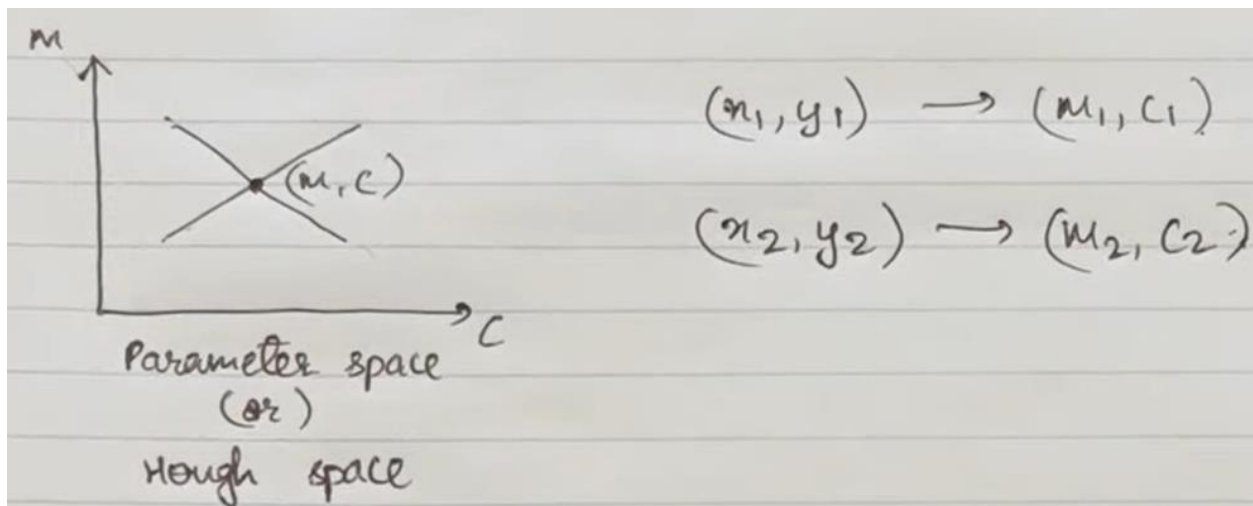 m
(m, c)
c
Parameter space
(or)
Hough space
(x1, y1) → (m1, c1)
(x2, y2) → (m2, c2)